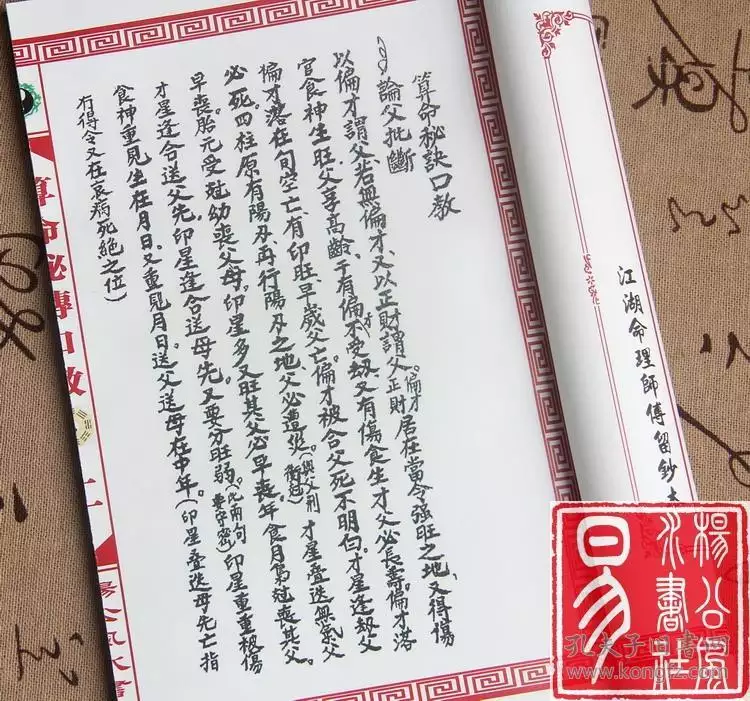 算命秘訣口教
論父批斷
以偏才謂父若無偏才又以正財謂父。偏才正財居在當令強旺之地、又得傷
官食神生旺、父享高齡、干有偏才不受刼、又有傷食生才父必長壽。偏才落
偏才落在旬空亡、有印旺早歲父亡。偏才被合父死不明白。才星逢刼父
必死。四柱原有陽刃、再行陽刃之地、父必遭災(與父刑衝尅)才星疊迭無氣父
早喪。胎元受尅幼喪父母。印星多又旺其父必早喪。年食月Ꮷ尅喪其父。
才星逢合送父先、印星逢合送母先、又要分旺弱。(此兩句要守密)印星重重被傷
食神重見生在月日、又重見月日送父送母在中年。(印星疊迭母先亡指
有得令又在衰病死絕之位)
算命秘傳口教
楊公風水書
江湖命理師傅留鈔本
楊公風水書社
易
孔夫子旧书网
www.kongfz.com